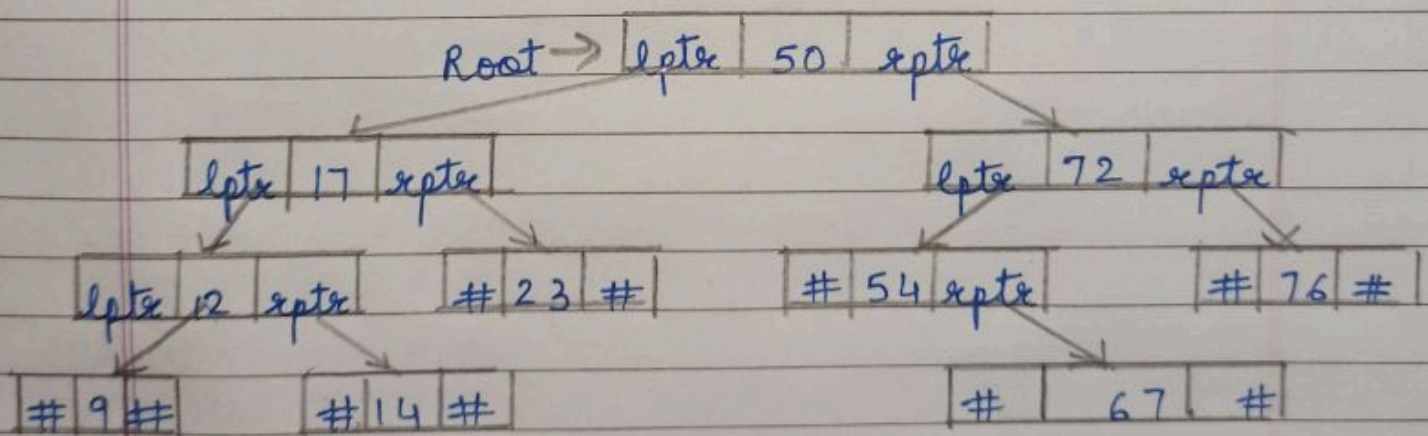 Root → lptr 50 rptr
lptr 17 rptr lptr 72 rptr
lptr 12 rptr # 23 # # 54 rptr # 76 #
# 9 # # 14 # # 67 #